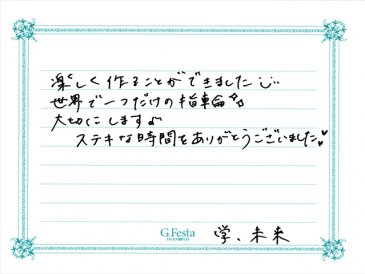 楽しく作ることができました
世界で一つだけの指輪
大切にします♪
ステキな時間をありがとうございました♥
G.Festa
学、未来